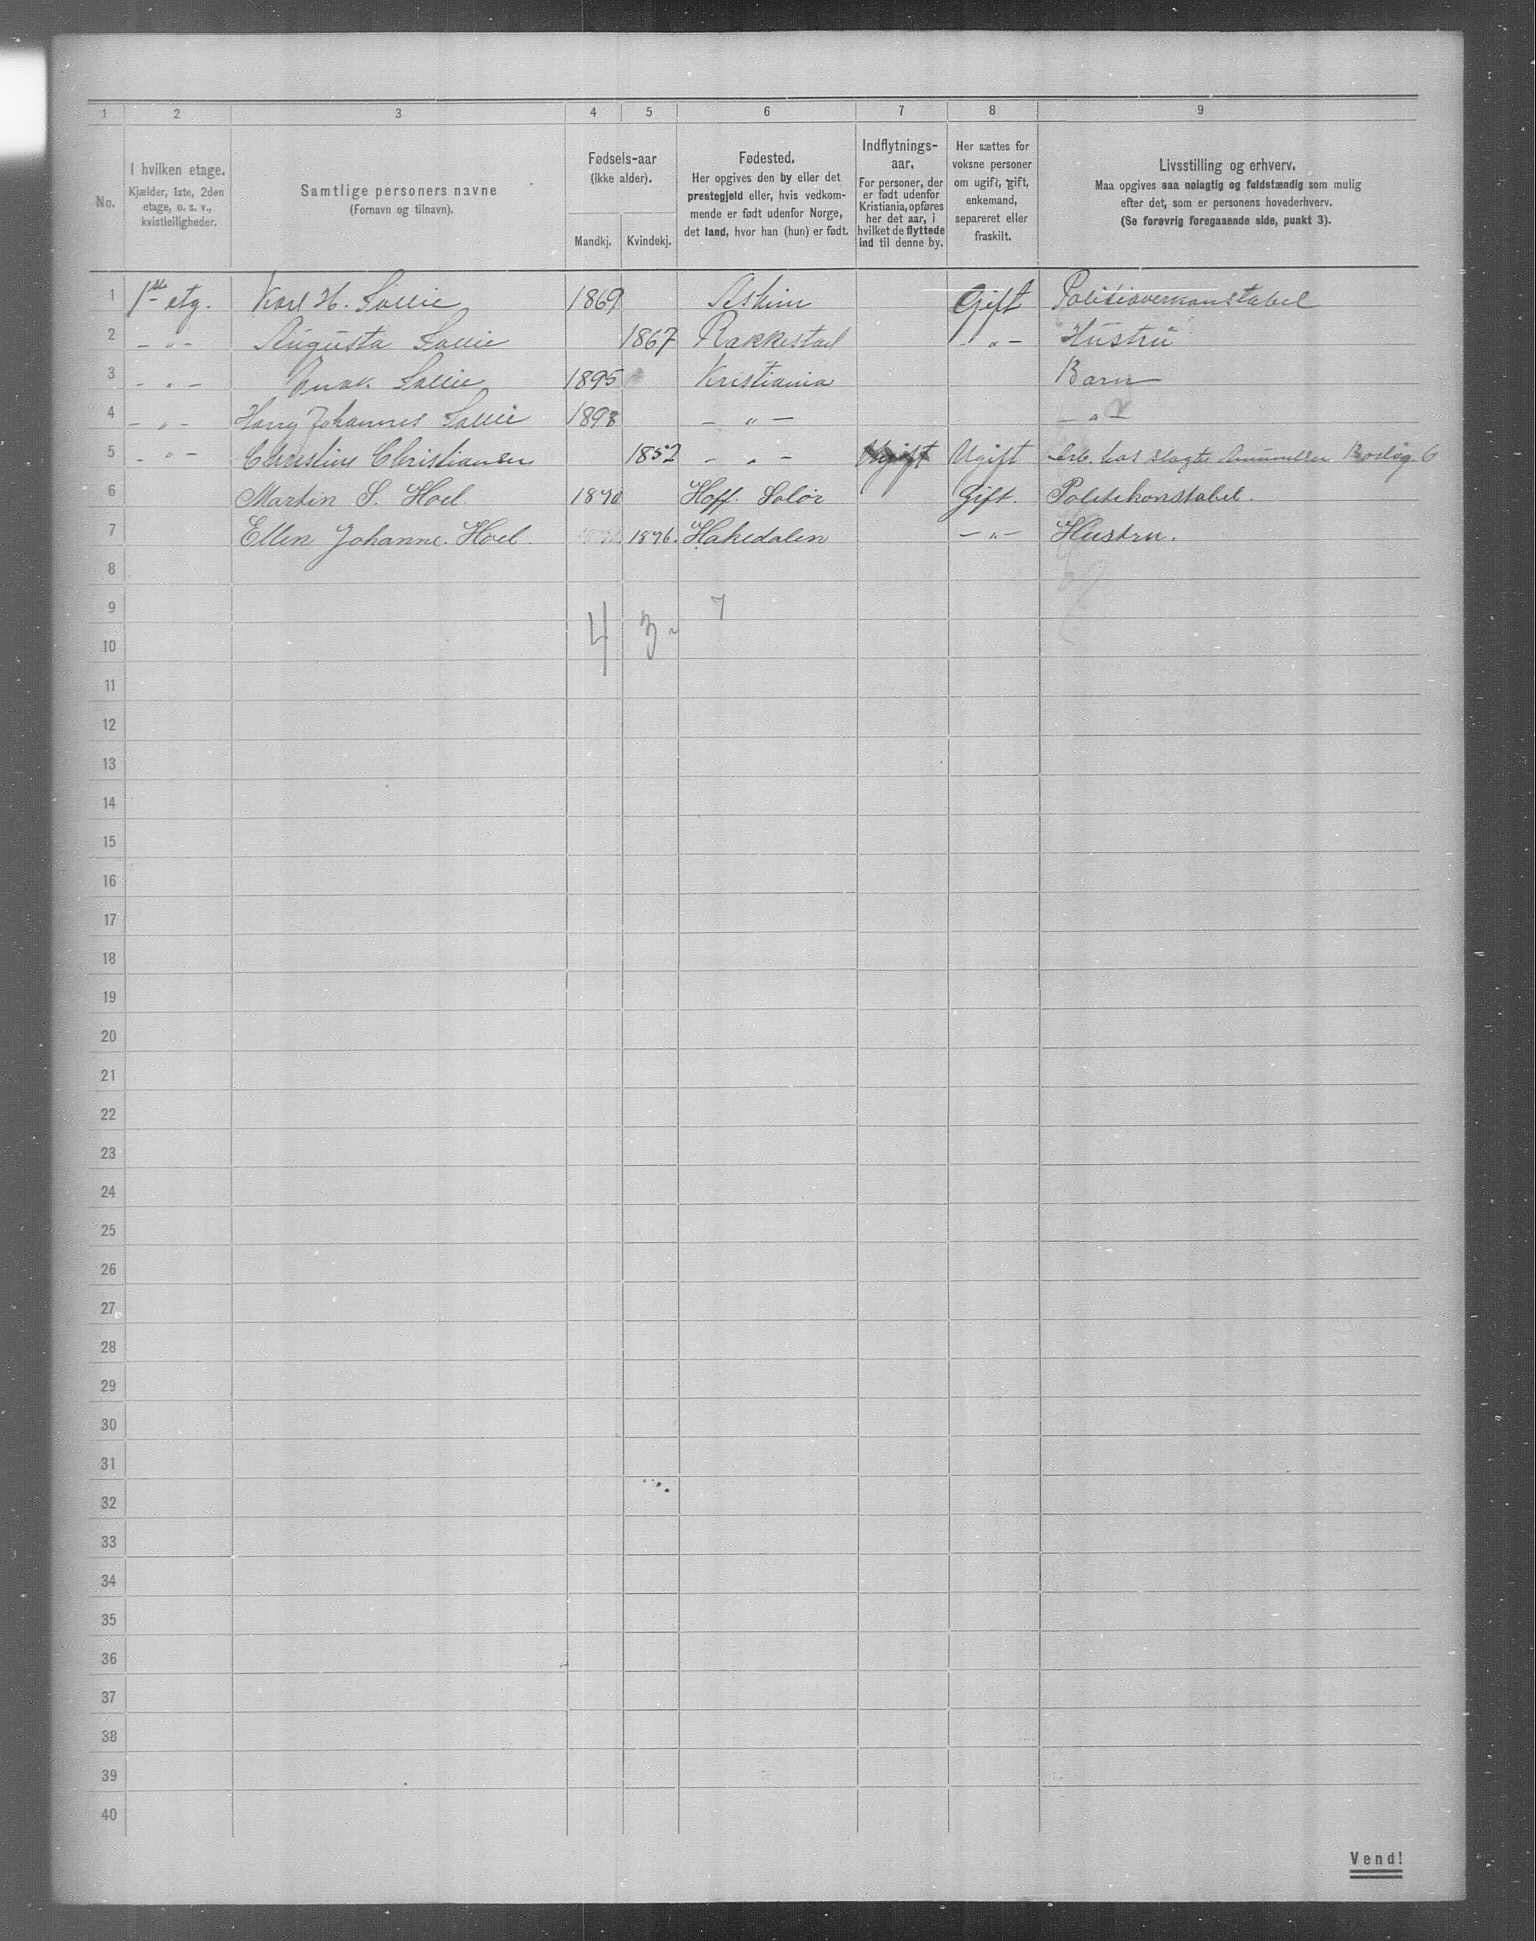 1 2 3 4 5 6 7 8 9
No.
I hvilken etage.
Kjælder, 1ste, 2den
etage, o. s. v.,
kvistleiligheder.
Samtlige personers navne
(Fornavn og tilnavn).
Fødsels-aar
(ikke alder).
Mandkj. Kvindekj.
Fødested.
Her opgives den by eller det
prestegjeld eller, hvis vedkom-
mende er født udenfor Norge,
det land, hvor han (hun) er født.
Indflytnings-
aar.
For personer, der
er født udenfor
Kristiania, opføres
her det aar, i
hvilket de flyttede
ind til denne by.
Her sættes for
voksne personer
om ugift, gift,
enkemand,
separeret eller
fraskilt.
Livsstilling og erhverv.
Maa opgives saa nøiagtig og fuldstændig som mulig
efter det, som er personens hovederhverv.
(Se forøvrig foregaaende side, punkt 3).
1 1ste etg. Karl H. Sollie 1869 Askim Gift Politioverkonstabel
2 — " — Augusta Sollie 1867 Rakkestad — " — Hustru
3 — " — Sollie 1895 Kristiania Barn
4 — " — Harry Johannes Sollie 1898 — " — — " —
5 — " — Christine Christiansen 1852 — " — Ugift Ugift Arb. hos slagter 6
6 Martin S. Hoel 1870 Hoff. Solør Gift. Politikonstabel.
7 Ellen Johanne Hoel. 1876. Hakedalen — " — Hustru.
8
9 7
4 3
10
11
12
13
14
15
16
17
18
19
20
21
22
23
24
25
26
27
28
29
30
31
32
33
34
35
36
37
38
39
40
Vend!